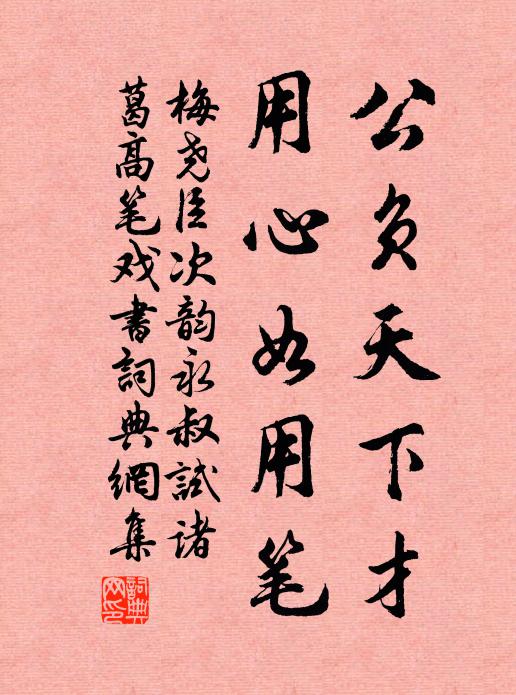 公负天下才
用心如用笔
梅尧臣次韵永叔试诸
葛高笔戏书詞典網集
詞典
网印